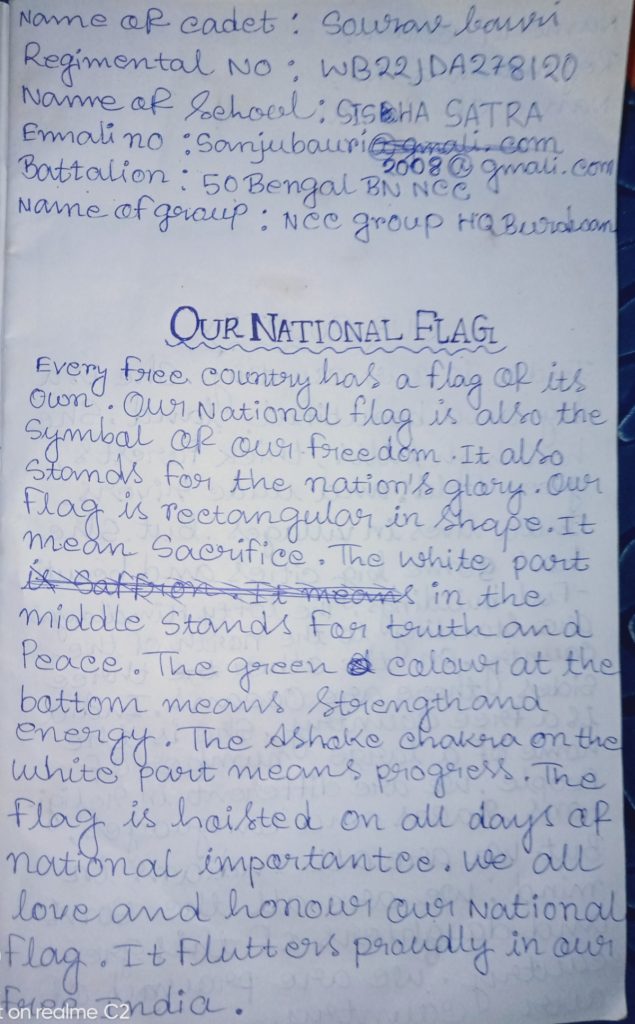 Name of cadet : Sourav bauri
Regimental No : WB22JDA278120
Name of School : SISHA SATRA
Emali no : Sanjubauri@gmali.com
2008@gmali.com
Battalion : 50 Bengal BN NCC
Name of group : NCC group HQ Burdwan
OUR NATIONAL FLAG
Every free country has a flag of its
own. Our National flag is also the
Symbol of our freedom. It also
Stands for the nation's glory. Our
flag is rectangular in shape. It
mean Sacrifice. The white part
is Saffron. It means in the
middle Stands for truth and
Peace. The green colour at the
bottom means Strength and
energy. The Ashoke chakra on the
white part means progress. The
flag is hoisted on all days of
national importantce. we all
love and honour our National
flag. It Flutters proudly in our
free India.
t on realme C2